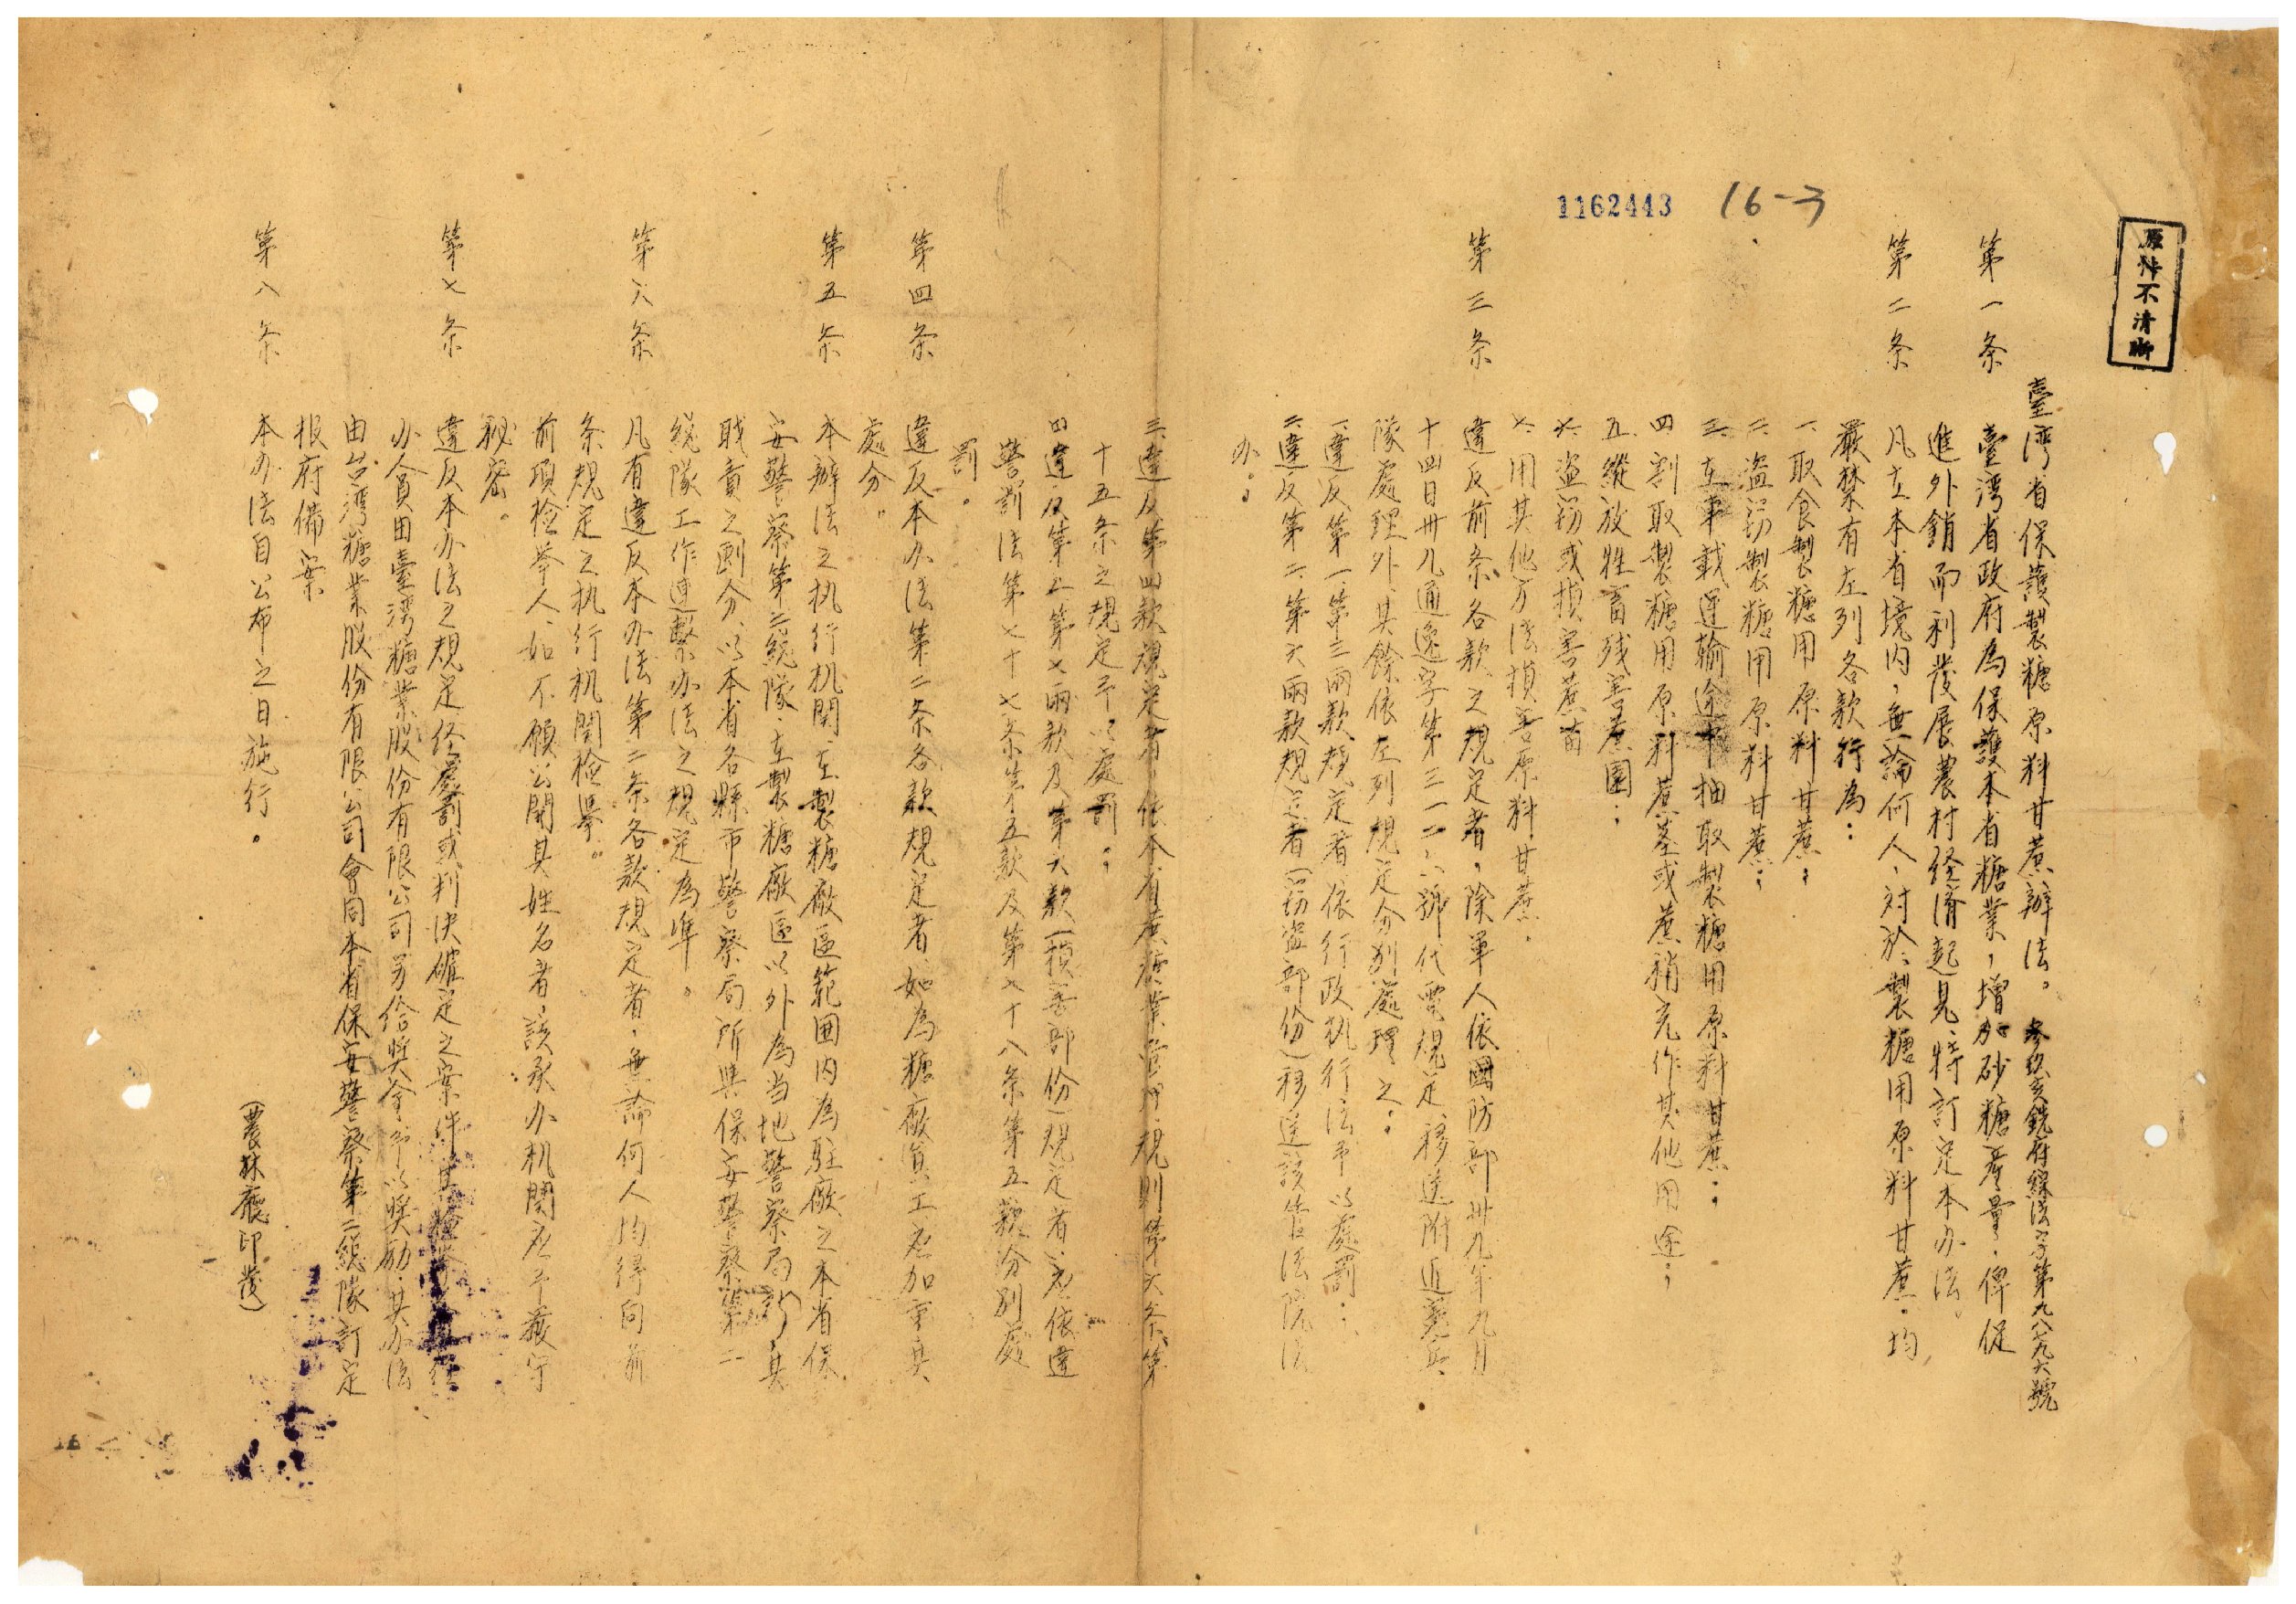 原件不清晰
1162443
16-3
臺湾省保護製糖原料甘蔗辦法。 參玖亥銑府綜法字第九八九六號
第一条 臺湾省政府為保護本省糖業，增加砂糖產量，俾促
進外銷而利發展農村経濟起見，特訂定本办法。
第二条 凡在本省境内，無論何人，対於製糖用原料甘蔗，均
嚴禁有左列各款行為：
一、取食製糖用原料甘蔗；
二、盜窃製糖用原料甘蔗；
三、在車載運輸途中抽取製糖用原料甘蔗；
四、割取製糖用原料蔗莖或蔗稍充作其他用途；
五、縱放牲畜残害蔗園；
六、盜窃或損害蔗苗
七、用其他方法損害原料甘蔗。
第三条 違反前条各款之規定者，除軍人依國防部卅九年九月
十四日卅九通逸字第三一二六號代電規定移送附近憲兵
隊處理外，其餘依左列規定分別處理之：
一、違反第一、第三兩款規定者，依行政执行法予以處罰；
二、違反第二、第六兩款規定者（窃盜部份）移送該管法院法
办；
三、違反第四款規定者，依本省蔗糖業管理規則第六条、第
十五条之規定予以處罰；
四、違反第五、第七兩款及第六款（損害部份）規定者，应依違
警罰法第七十七条第五款及第七十八条第五款分別處
罰。
第四条 違反本办法第二条各款規定者，如為糖廠員工，应加重其
處分。
第五条 本辦法之执行机関，在製糖廠區範囲内為駐廠之本省保
安警察第二総隊，在製糖廠區以外為当地警察局所，其
职責之劃分，以本省各縣市警察局所與保安警察第二
総隊工作連繫办法之規定為準。
第六条 凡有違反本办法第二条各款規定者，無論何人均得向前
条規定之执行机関檢舉。
前項检举人，如不願公開其姓名者，該承办机関应予嚴守
秘密。
第七条 違反本办法之規定经處罰或判决確定之案件其檢举
办人員由臺湾糖業股份有限公司另给獎金予以獎励，其办法
由台湾糖業股份有限公司會同本省保安警察第二総隊訂定
报府備案
第八条 本办法自公布之日施行。
（農林廳印發）